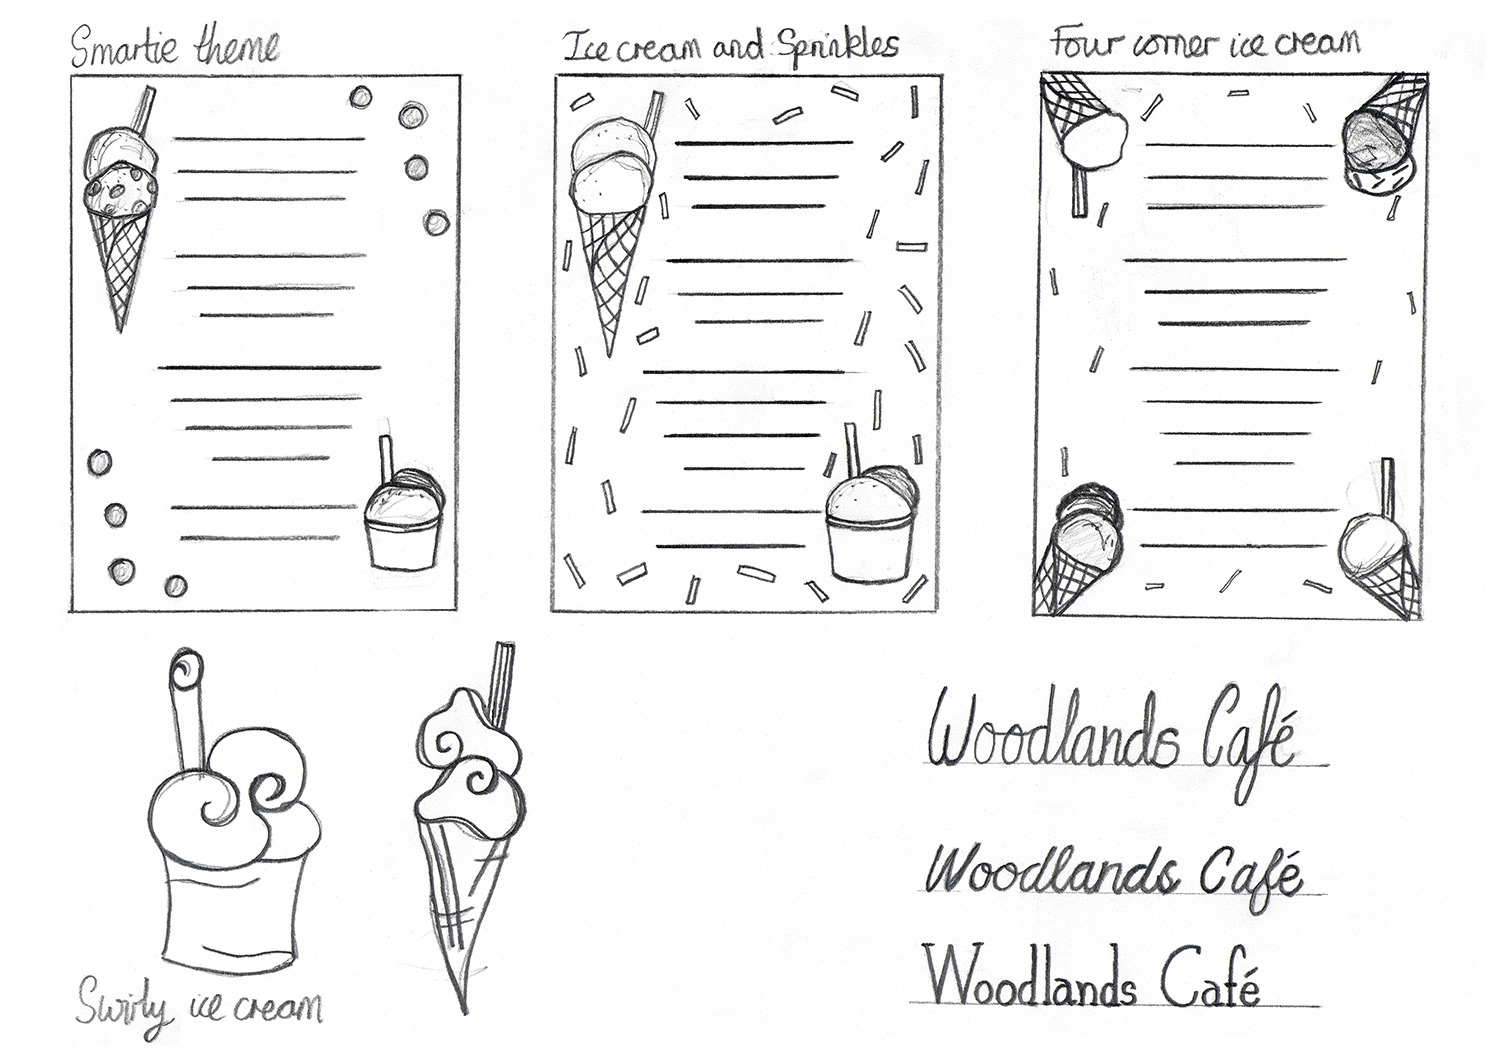 Smartie theme
Ice cream and Sprinkles
Four corner ice cream
Swirly ice cream
Woodlands Café
Woodlands Café
Woodlands Café